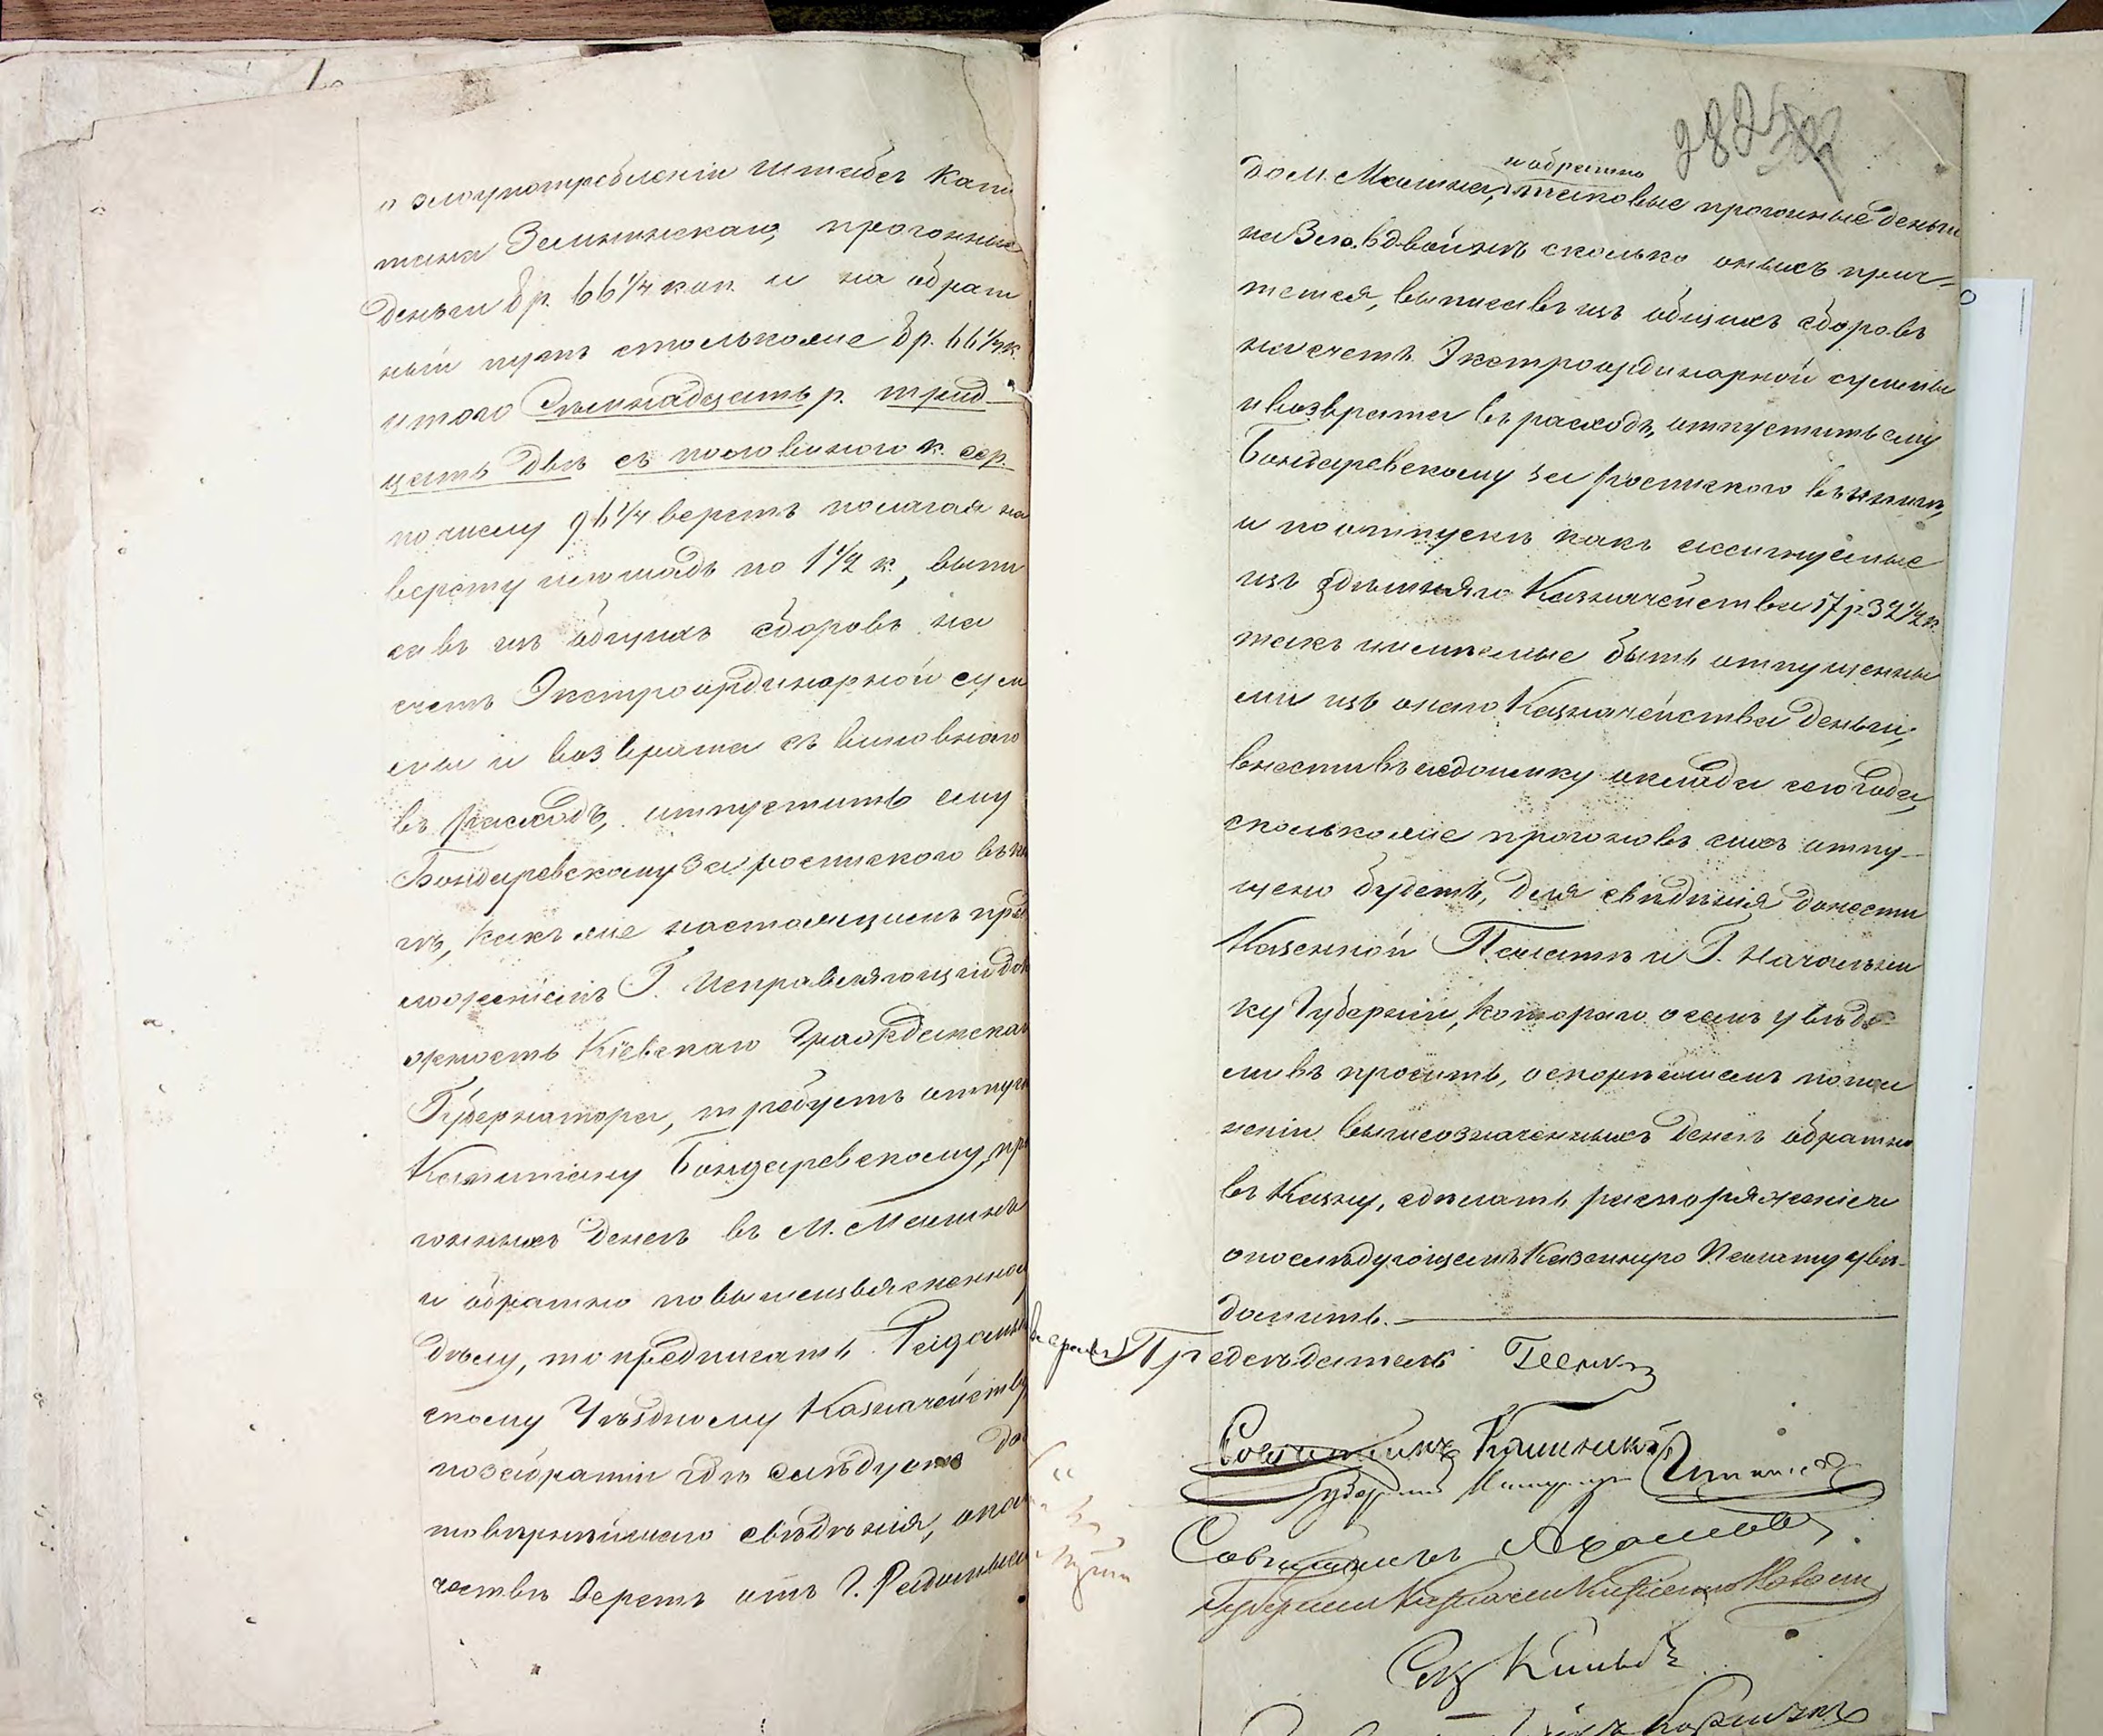 о злоупотребленіи Штабсъ Капи
тана Зелинскаго, прогонные
деньги 8 р. 66 1/4 коп. и на обрат
ный путь столькоже 8 р. 66 1/4 к.
итого Семнадцать р. трид
цать двѣ съ половиною к. сер.
по числу 96 1/4 верстъ полагая на
версту и лошадь по 1 1/2 к., выпи
савъ изъ общихъ сборовъ на
счетъ Экстроординарной сум
мы и возврата съ виновнаго
въ расходъ, отпустить ему
Бондаревскому за роспискою въ кни
гѣ, какъ же настоящимъ пред
ложеніемъ Г. Исправляющій дол
жность Кіевскаго Гражданскаго
Губернатора, требуетъ отпуска
Капитану Бондаревскому, про
гонныхъ денегъ въ М. Малинъ
и обратно по вышеизъясненному
дѣлу, то предписать Радомысль
скому Уѣздному Казначейству
по забраніи гдѣ слѣдуетъ до
стовѣрнѣйшаго свѣдѣнія, о коли
чествѣ верстъ отъ Г. Радомысля
2825
до М. Малина, и обратно таковые прогонные деньги
на 3 ло. вдвойнѣ сколько оныхъ прич-
тется, выписавъ изъ общихъ сборовъ
на счетъ Экстроординарной суммы
и возврата въ расходъ, отпустить ему
Бондаревскому за роспискою въ книгѣ,
и по отпускѣ какъ ассигнуемые
изъ здѣшняго Казначейства 17 р. 32 1/2 к.
такъ и имѣемые быть отпущенны
ми изъ онаго Казначейства деньги,
внести въ недоимку оклада сего года,
сколькоже прогоновъ сихъ отпу-
щено будетъ, для свѣдѣнія донести
Казенной Палатѣ и Г. Начальни
ку Губерніи, котораго о семъ увѣдо
мивъ просить, о скорѣйшемъ попол
неніи вышеозначенныхъ денегъ обратно
въ Казну, сдѣлать распоряженіе и
о послѣдующемъ Казенную Палату увѣ-
домить.
Предсѣдатель
Совѣтникъ
Губернскій
Совѣтникъ
Губернскій Казначей
Секр.